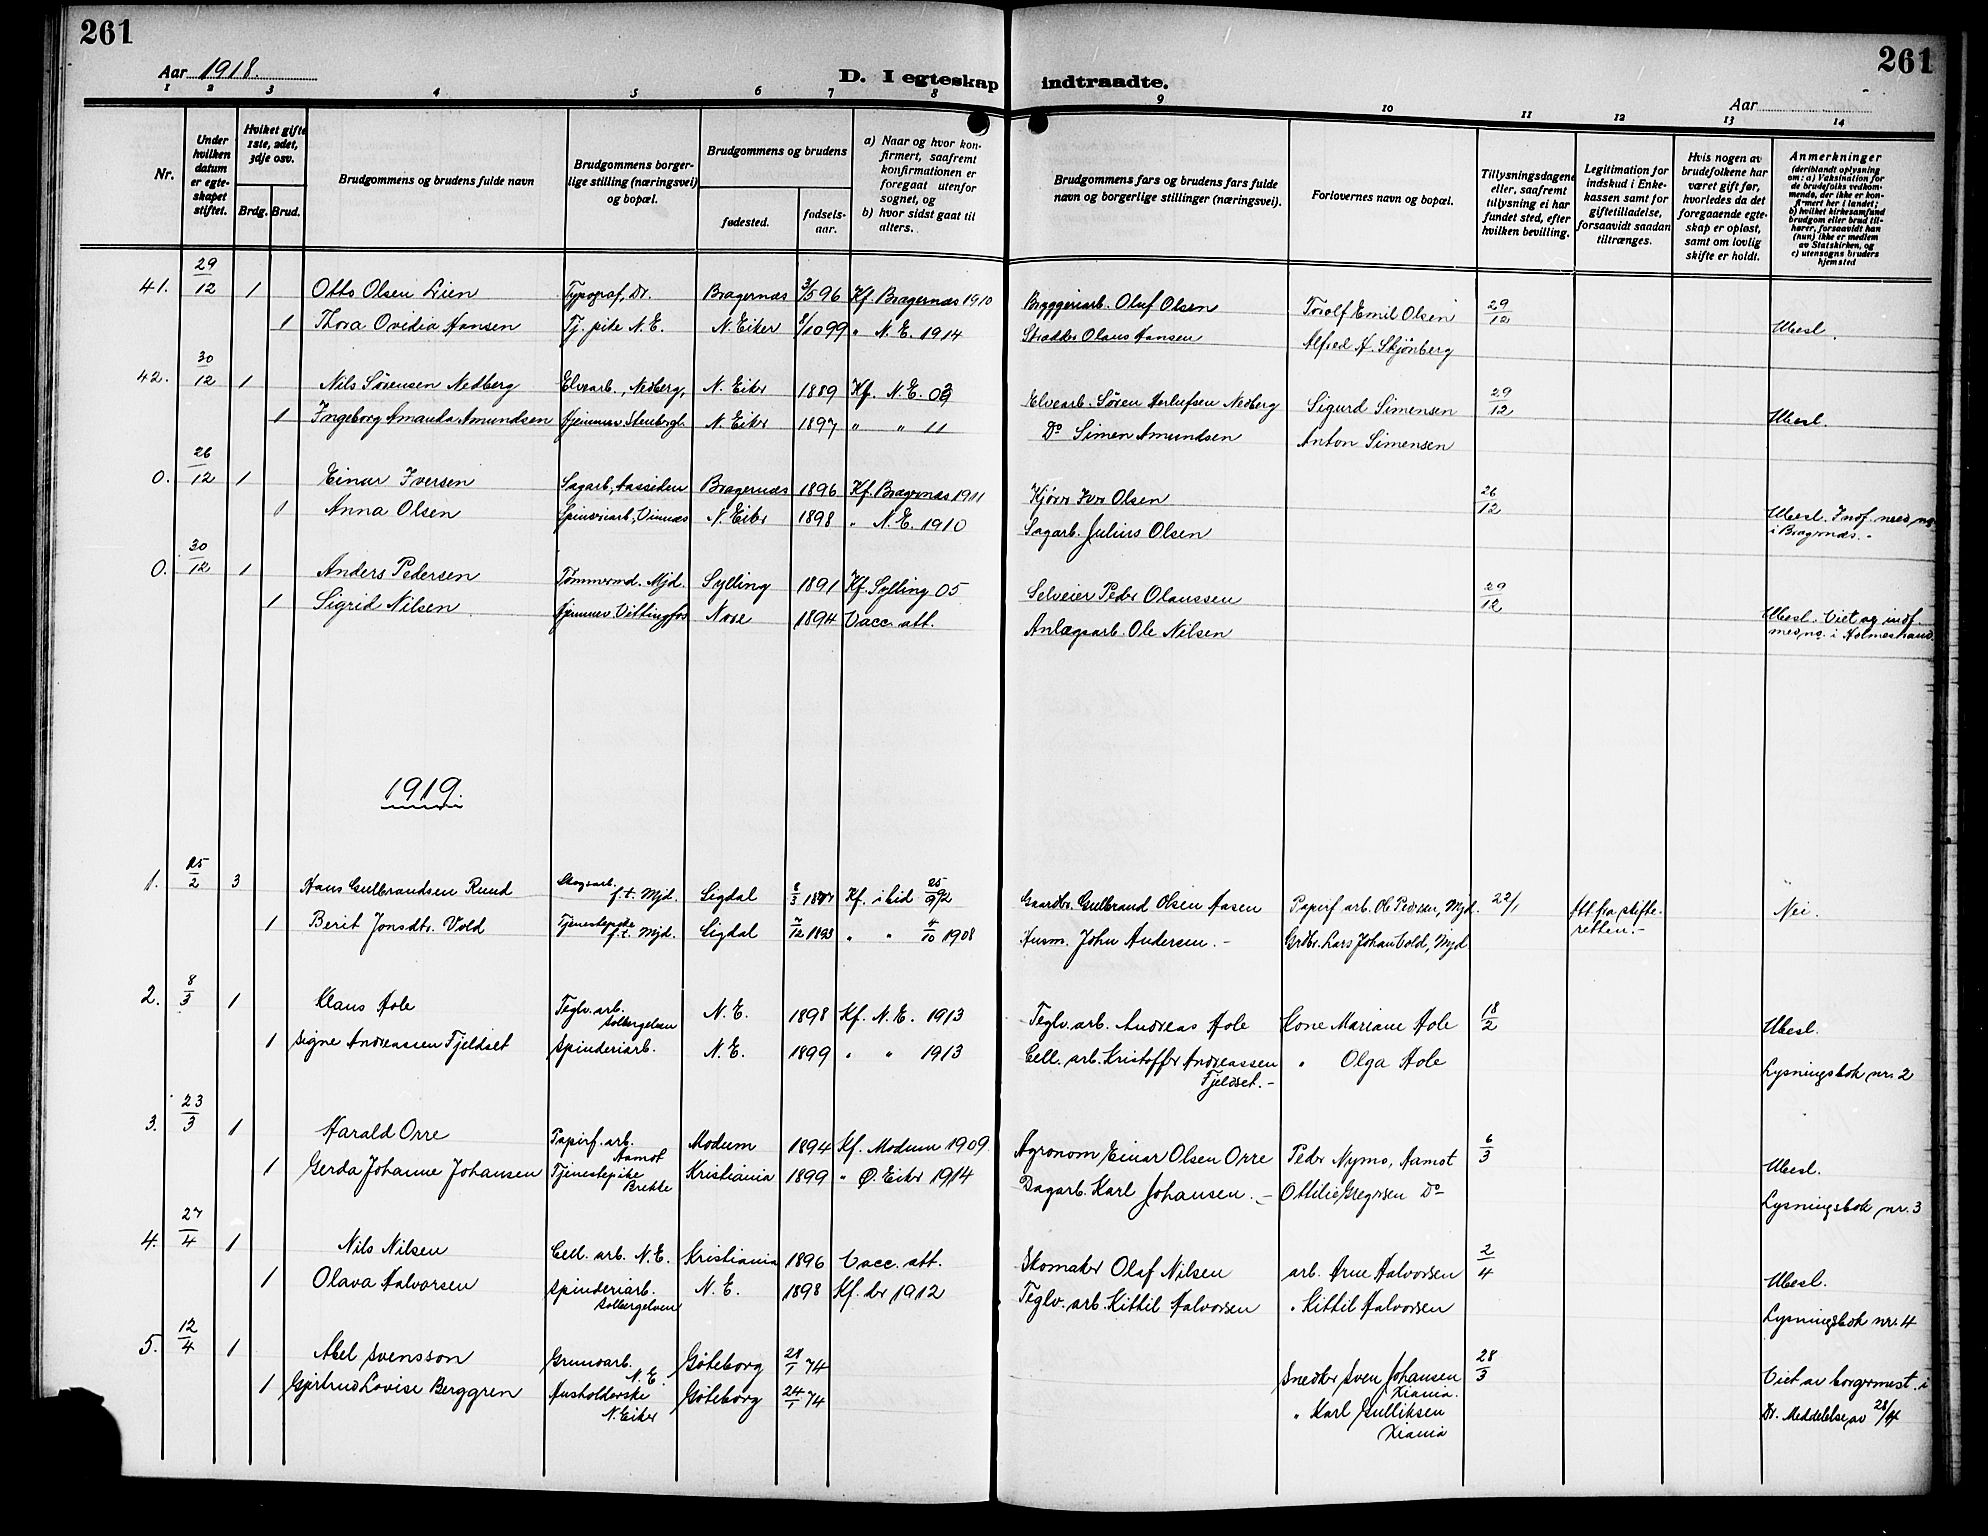 261
261
Aar 1918.
D. I egteskap indtraadte.
Aar
1 2 3 4 5 6 7 8 9 10 11 12 13 14
Nr.
Under hvilken datum er egteskapet stiftet.
Hvilket gifte 1ste, 2det, 3dje osv.
Brdg. Brud.
Brudgommens og brudens fulde navn
Brudgommens borgerlige stilling (næringsvei) og bopæl.
Brudgommens og brudens
fødested.
fødselsaar.
a) Naar og hvor konfirmert, saafremt konfirmationen er foregaat utenfor sognet, og
b) hvor sidst gaat til alters.
Brudgommens fars og brudens fars fulde navn og borgerlige stillinger (næringsvei).
Forlovernes navn og bopæl.
Tillysningsdagene eller, saafremt tillysning ei har fundet sted, efter hvilken bevilling.
Legitimation for indskud i Enkekassen samt for giftetilladelse, forsaavidt saadan tiltrænges.
Hvis nogen av brudefolkene har været gift før, hvorledes da det foregaaende egteskap er opløst, samt om lovlig skifte er holdt.
Anmerkninger (deriblandt oplysning om: a) Vaksination for de brudefolks vedkommende, der ikke er konfirmert her i landet; b) hvilket kirkesamfund brudgom eller brud tilhører, forsaavidt han (hun) ikke er medlem av Statskirken, og c) utensogns bruders hjemsted
41. 29/12 1 Otto Olsen Lien Typograf, Dr. Bragernæs 3/5 96 Kf. Bragernæs 1910 Bryggeriarb. Oluf Olsen Torolf Emil Olsen 29/12
1 Thora Ovidia Hansen Tj. pike N. E. N. Eiker 8/10 99 " N. E. 1914 Skrædder Olaus Hansen Alfred H. Skjønberg Ubesl.
42. 30/12 1 Nils Sørensen Nedberg Elvearb., Nedberg, N. Eiker 1889 Kf. N. E. 03 Elvearb. Søren Herlufsen Nedberg Sigurd Simensen 29/12
1 Ingeborg Amanda Amundsen Hjemmev. Stenbergl. N. Eiker 1897 " " 11 Do Simen Amundsen Anton Simensen Ubesl.
0. 26/12 1 Einar Iversen Sagarb., Aassiden Bragernæs 1896 Kf. Bragernæs 1911 Kjører Iver Olsen 26/12
1 Anna Olsen Spinneriarb., Vinnæs N. Eiker 1898 " N. E. 1910 Sagarb. Julius Olsen Ubesl. Indf. med no.
i Bragernæs.
0. 30/12 1 Anders Pedersen Tømmermd. Mjd. Sylling 1891 Kf. Sylling 05 Selveier Peder Olaussen 29/12
1 Sigrid Nilsen Hjemmev. Vittingfos Nore 1894 Vacc. att. Anlægsarb. Ole Nilsen Ubesl. Viet og indf.
med no. i Holmestrand.
1919.
1. 25/2 3 Hans Gulbrandsen Ruud Skogsarb. f. t. Mjd. Sigdal Kf. ibid Gaardbr. Gulbrand Olsen Aasen Papirf. arb. Ole Pedersen, Mjd. 22/1 Att. fra skifteretten.- Nei.
1 Berit Jonsdtr. Vold Tjenestepike f. t. Mjd. Sigdal 7/12 1893 " " 4/10 1908 Husm. John Andersen. - Grdbr. Lars Johan Vold, Mjd
2. 8/3 1 Klaus Hole Teglv. arb. Solbergelven N. E. 1898 Kf. N. E. 1913 Teglv. arb. Andreas Hole Kone Mariane Hole 18/2 Ubesl.
1 Signe Andreassen Fjeldset Spinderiarb. N. E. 1899 " " 1913 Cell. arb. Kristoffer Andreassen Fjeldset. - " Olga Hole Lysningsbok nr. 2
3. 23/3 1 Harald Orre Papirf. arb. Aamot Modum 1894 Kf. Modum 1909 Agronom Einar Olsen Orre Peder Nymo, Aamot 6/3 Ubesl.
1 Gerda Johanne Johansen Tjenestepike Brekke Kristiania 1899 " Ø. Eiker 1914 Dagarb. Karl Johansen. - Ottilie Gregersen Do Lysningsbok nr. 3
4. 27/4 1 Nils Nilsen Cell. arb. N. E. Kristiania 1896 Vacc. att. Skomaker Olaf Nilsen arb. Arne Halvorsen 2/4 Ubesl.
1 Olava Halvorsen Spinderiarb. Solbergelven N. E. 1898 Kf. her 1912 Teglv. arb. Kittil Halvorsen " Kittil Halvorsen Lysningsbok nr. 4
5. 12/4 1 Abel Svensson Grubearb. N. E. Gøteborg 28/1 74 Snedker Sven Johansen Xiania. 28/3 Viet av borgermest. i
1 Gjertrud Lovise Berggren Husholderske N. Eiker Gøteborg 24/1 74 " Karl Gulliksen Xiania Dr. Meddelelse av 28/4